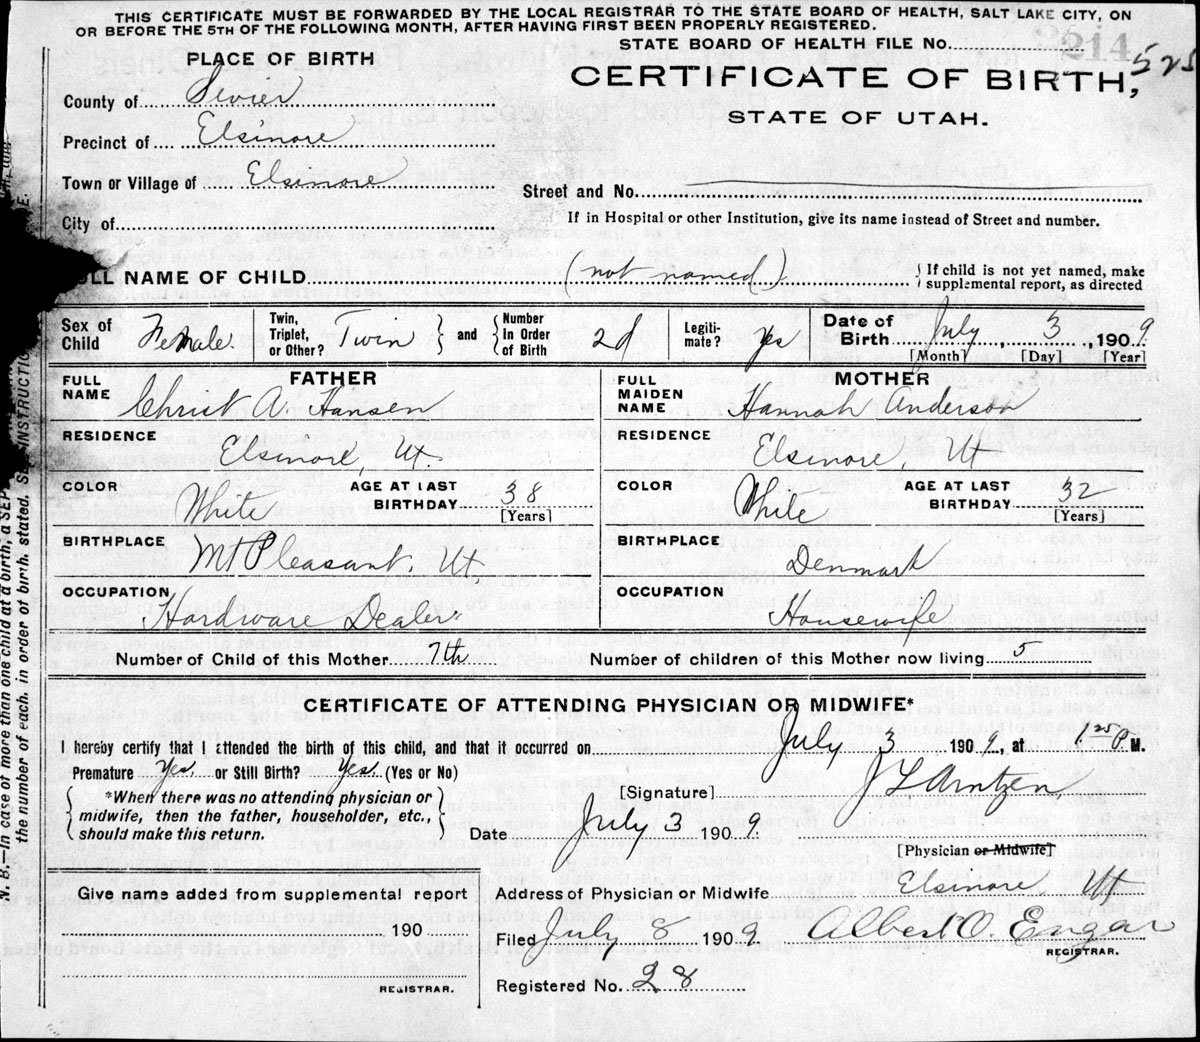 THIS CERTIFICATE MUST BE FORWARDED BY THE LOCAL REGISTRAR TO THE STATE BOARD OF HEALTH, SALT LAKE CITY, ON
OR BEFORE THE 5TH OF THE FOLLOWING MONTH, AFTER HAVING FIRST BEEN PROPERLY REGISTERED.
STATE BOARD OF HEALTH FILE No. 214 525
PLACE OF BIRTH
CERTIFICATE OF BIRTH,
STATE OF UTAH.
County of Sevier
Precinct of Elsinore
Town or Village of Elsinore
Street and No.
City of
If in Hospital or other Institution, give its name instead of Street and number.
FULL NAME OF CHILD (not named) If child is not yet named, make supplemental report, as directed
Sex of Child Female. Twin, Triplet, or Other? Twin and Number in Order of Birth 2d Legitimate? Yes Date of Birth July, 3, 1909
[Month] [Day] [Year]
FATHER MOTHER
FULL NAME Christ A. Hansen FULL MAIDEN NAME Hannah Anderson
RESIDENCE Elsinore, Ut. RESIDENCE Elsinore, Ut
COLOR White AGE AT LAST BIRTHDAY 38 [Years] COLOR White AGE AT LAST BIRTHDAY 32 [Years]
BIRTHPLACE Mt Pleasant, Ut BIRTHPLACE Denmark
OCCUPATION Hardware Dealer OCCUPATION Housewife
Number of Child of this Mother 7th Number of children of this Mother now living 5
CERTIFICATE OF ATTENDING PHYSICIAN OR MIDWIFE*
I hereby certify that I attended the birth of this child, and that it occurred on July 3 1909, at 1 25 P. M.
Premature Yes. or Still Birth? Yes. (Yes or No)
*When there was no attending physician or midwife, then the father, householder, etc., should make this return.
[Signature] J L
Date July 3 1909.
[Physician or Midwife]
Give name added from supplemental report
190
REGISTRAR.
Address of Physician or Midwife Elsinore Ut
Filed July 8 1909. Albert O. Engar
REGISTRAR.
Registered No. 28
N. B.—In case of more than one child at a birth, a SEP
the number of each, in order of birth, stated. INSTRUCTION